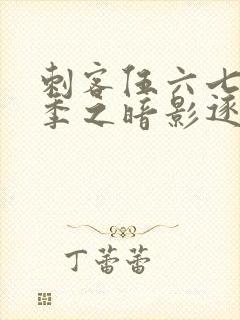 刺客伍六七
季之暗影逐
丁蕾蕾